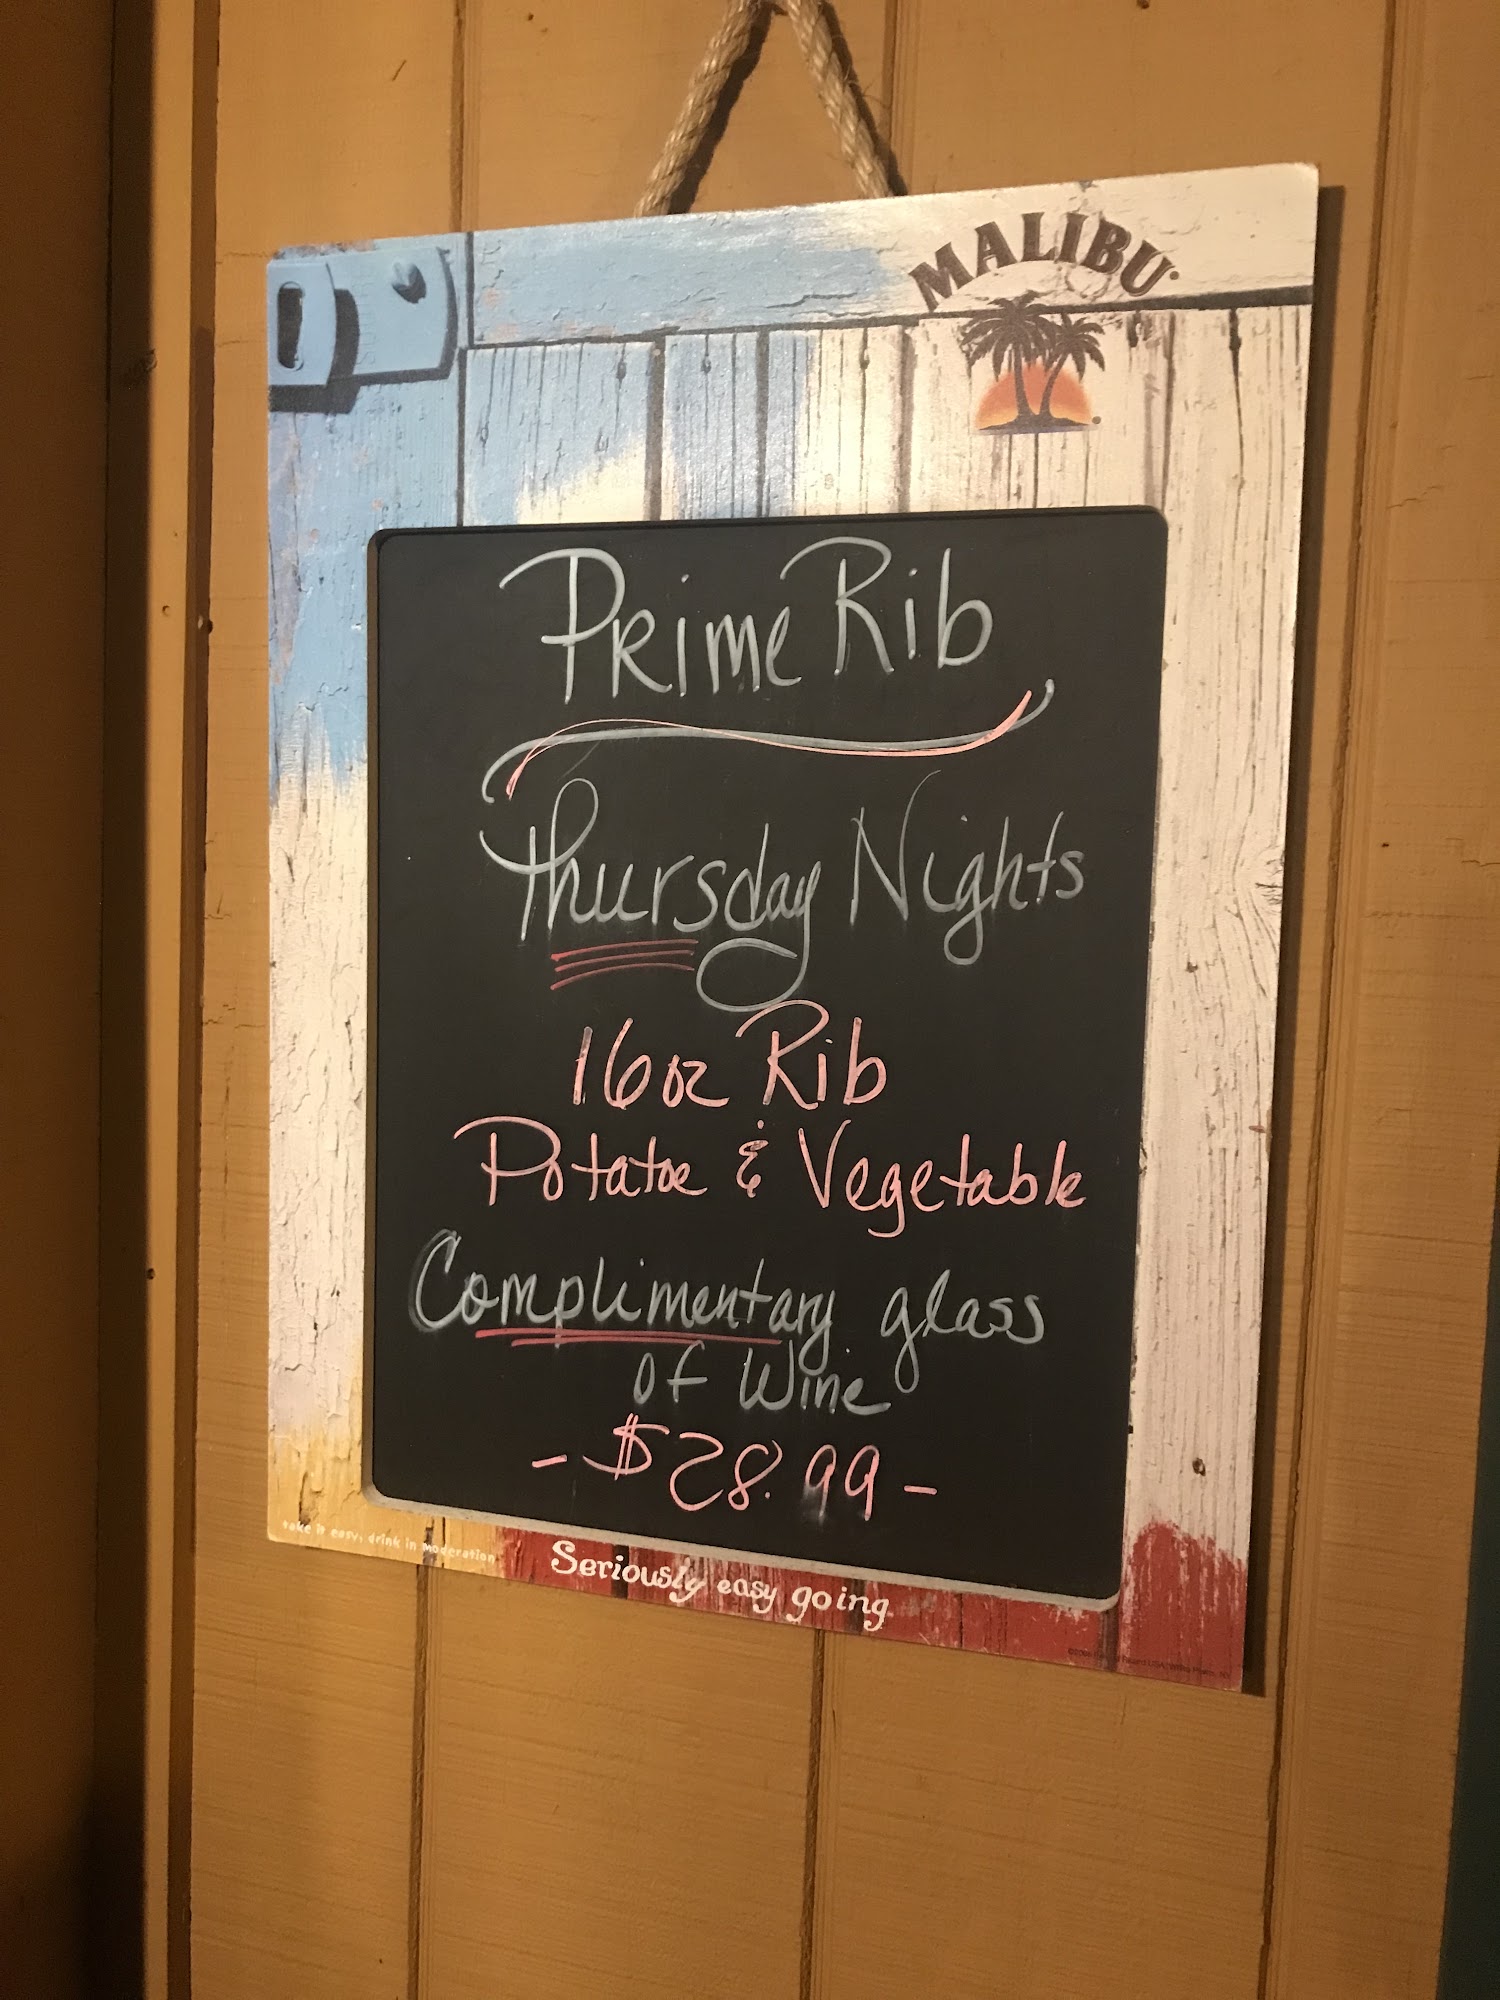 MALIBU
Prime Rib
Thursday Nights
16oz Rib
Potatoe & Vegetable
Complimentary glass
of Wine
- $28.99 -
take it easy, drink in moderation
Seriously easy going